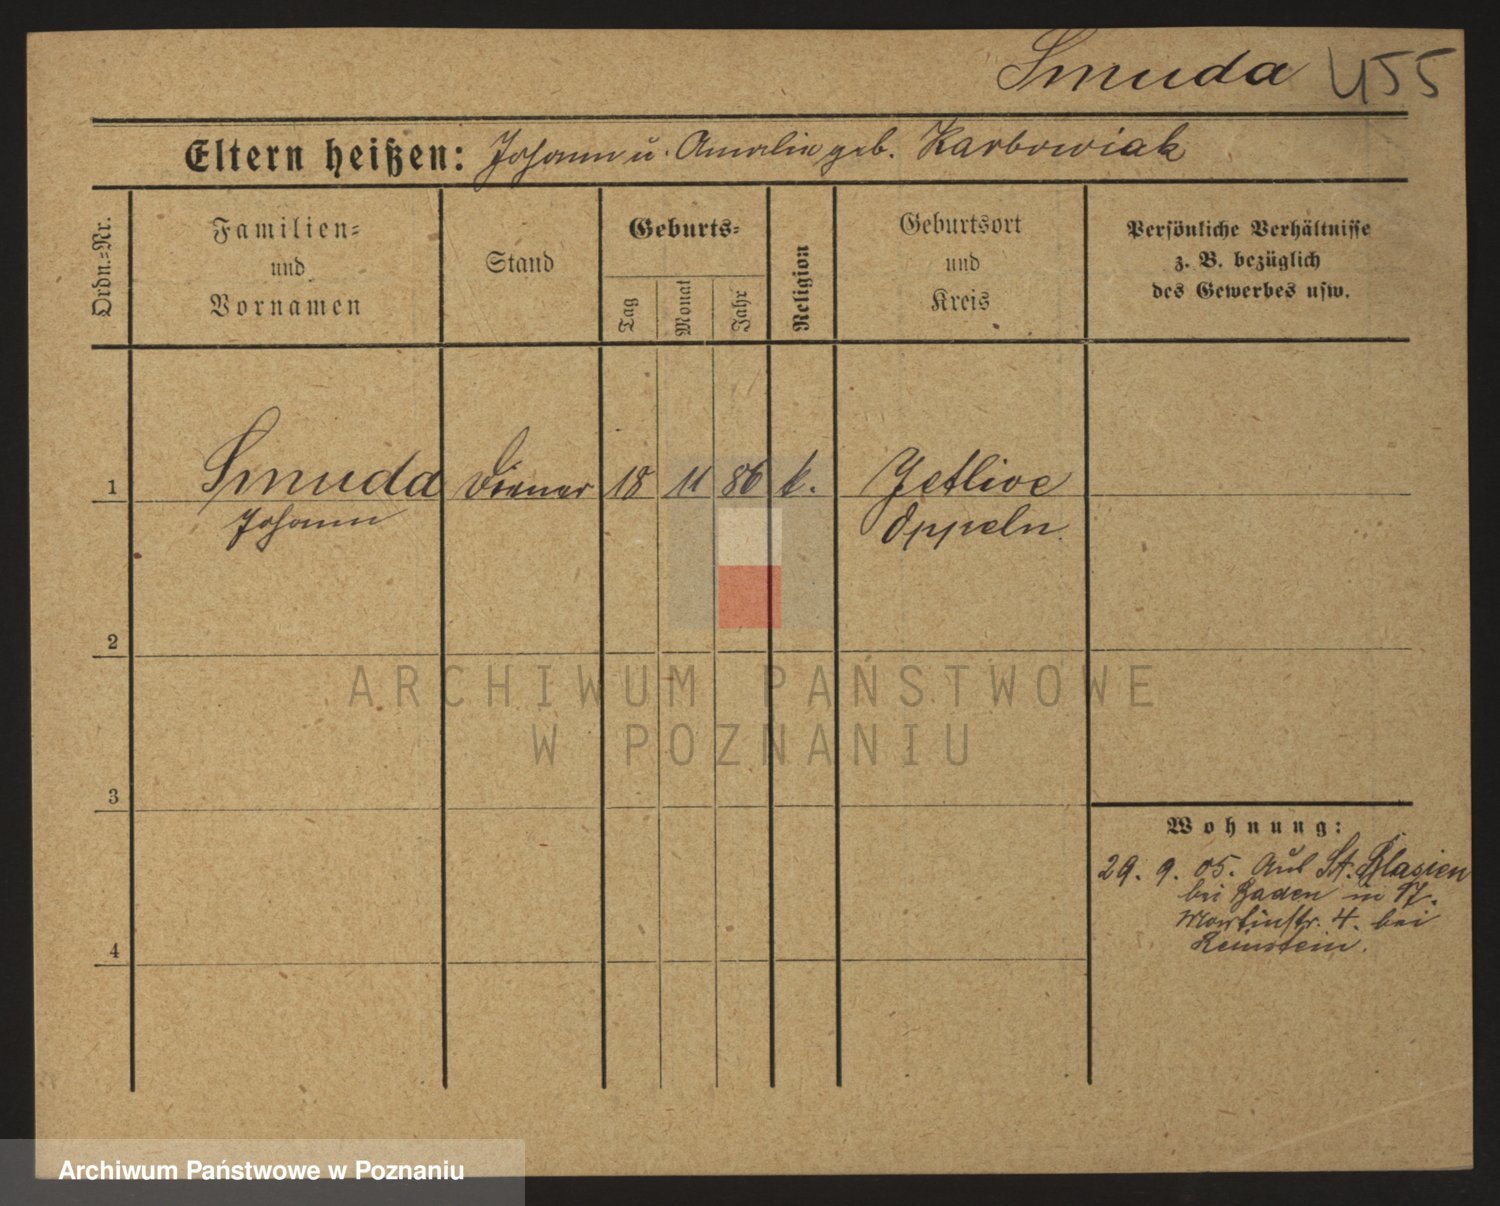 Smuda 455
Eltern heißen: Johann u. Amalie geb. Karbowiak
Ordn.-Nr.
Familien-
und
Vornamen
Stand
Geburts-
Tag
Monat
Jahr
Religion
Geburtsort
und
Kreis
Persönliche Verhältnisse
z. B. bezüglich
des Gewerbes usw.
1
Smuda
Johann
Diener
18
11
86
k.
Jetlive
Oppeln
2
3
4
ARCHIWUM PAŃSTWOWE
W POZNANIU
Wohnung:
29. 9. 05. Aus St. Blasien
bei Baden in
Martinstr. 4. bei
Reinstein.
Archiwum Państwowe w Poznaniu